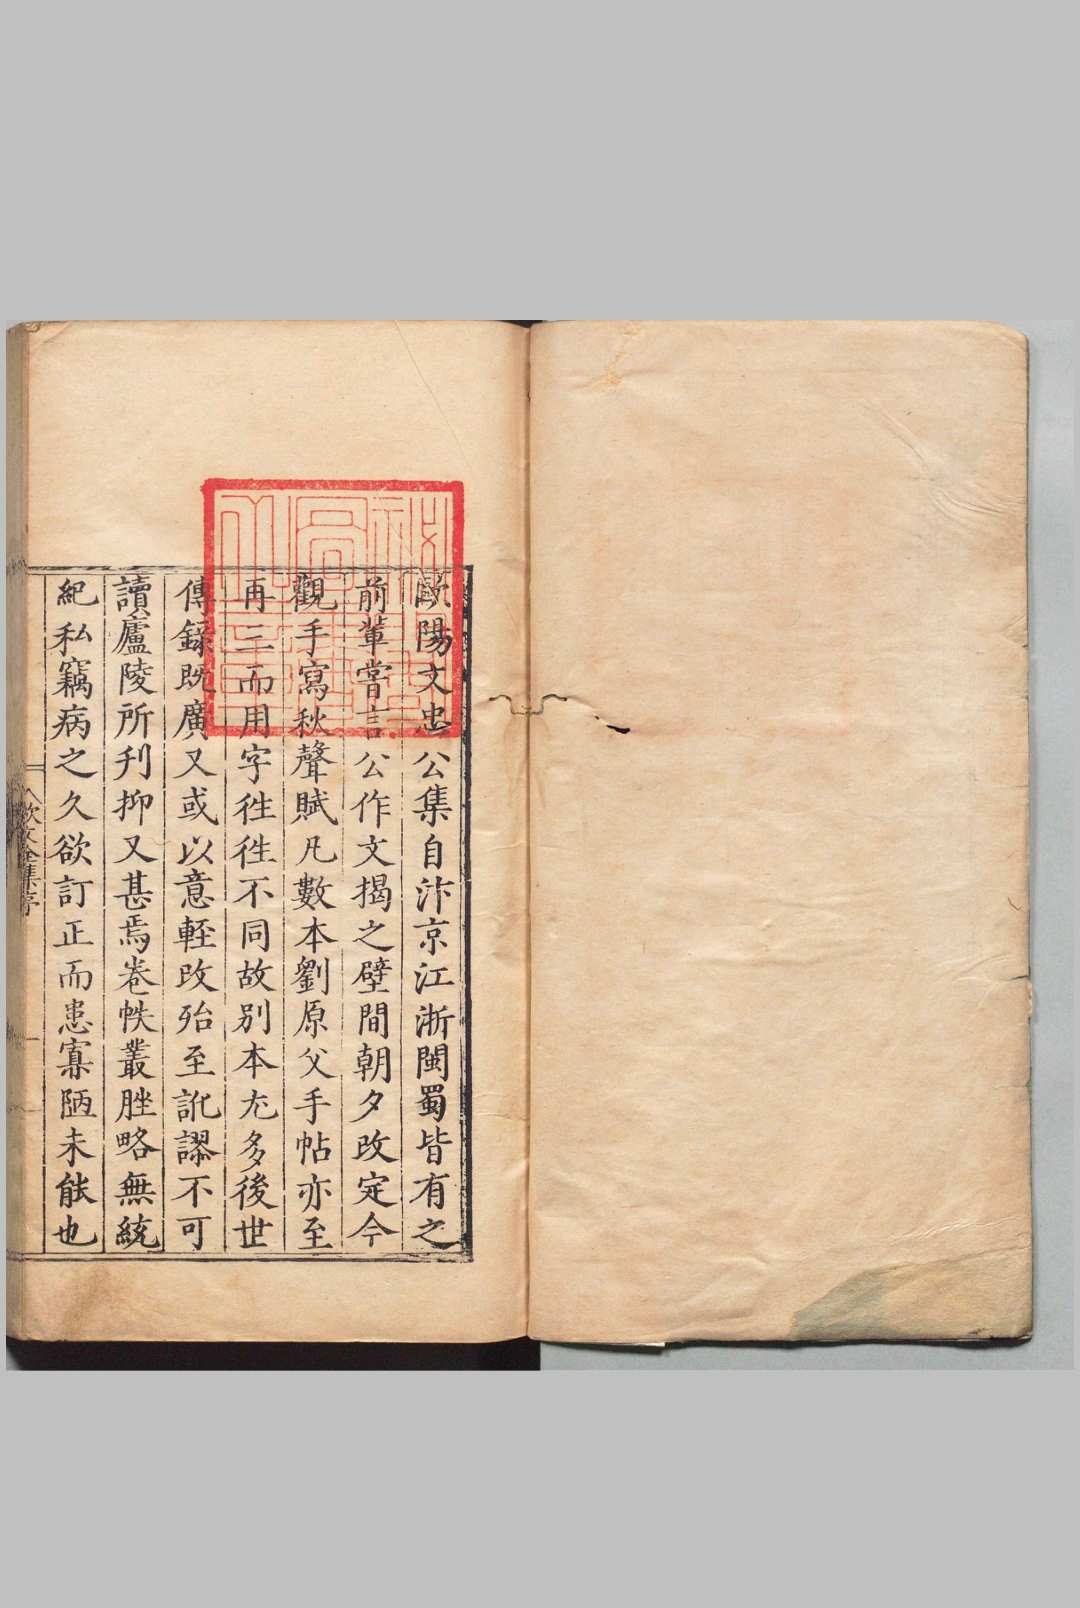 歐陽文忠公集自汴京江浙閩蜀皆有之
前輩嘗言公作文揭之壁間朝夕改定今
觀手寫秋聲賦凡數本劉原父手帖亦至
再三而用字徃徃不同故别本尤多後世
傳録既廣又或以意輕改殆至訛謬不可
讀廬陵所刋抑又甚焉卷帙叢脞略無統
紀私竊病之久欲訂正而患寡陋未能也